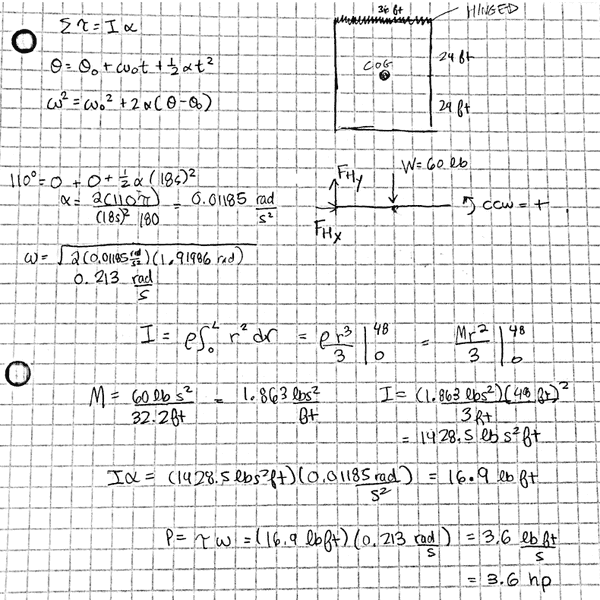 Στ = Iα
36 ft
HINGED
θ = θ₀ + ω₀t + ½αt²
24 ft
COG
ω² = ω₀² + 2α(θ-θ₀)
24 ft
110° = 0 + 0 + ½α(18s)²
F_Hy
W = 60 lb
α = 2(110π)/(18s)² 180 = 0.01185 rad/s²
CCW = +
F_Hx
ω = √2(0.01185 rad/s²)(1.91986 rad)
0.213 rad/s
I = ρ∫₀ᴸ r² dr = ρr³/3 |₀⁴⁸ = Mr²/3 |₀⁴⁸
M = 60 lb s²/32.2ft = 1.863 lbs²/ft
I = (1.863 lbs²)(48 ft)²/3ft
= 1428.5 lb s² ft
Iα = (1428.5 lbs²ft)(0.01185 rad/s²) = 16.9 lb ft
P = τω = (16.9 lbft)(0.213 rad/s) = 3.6 lb ft/s
= 3.6 hp